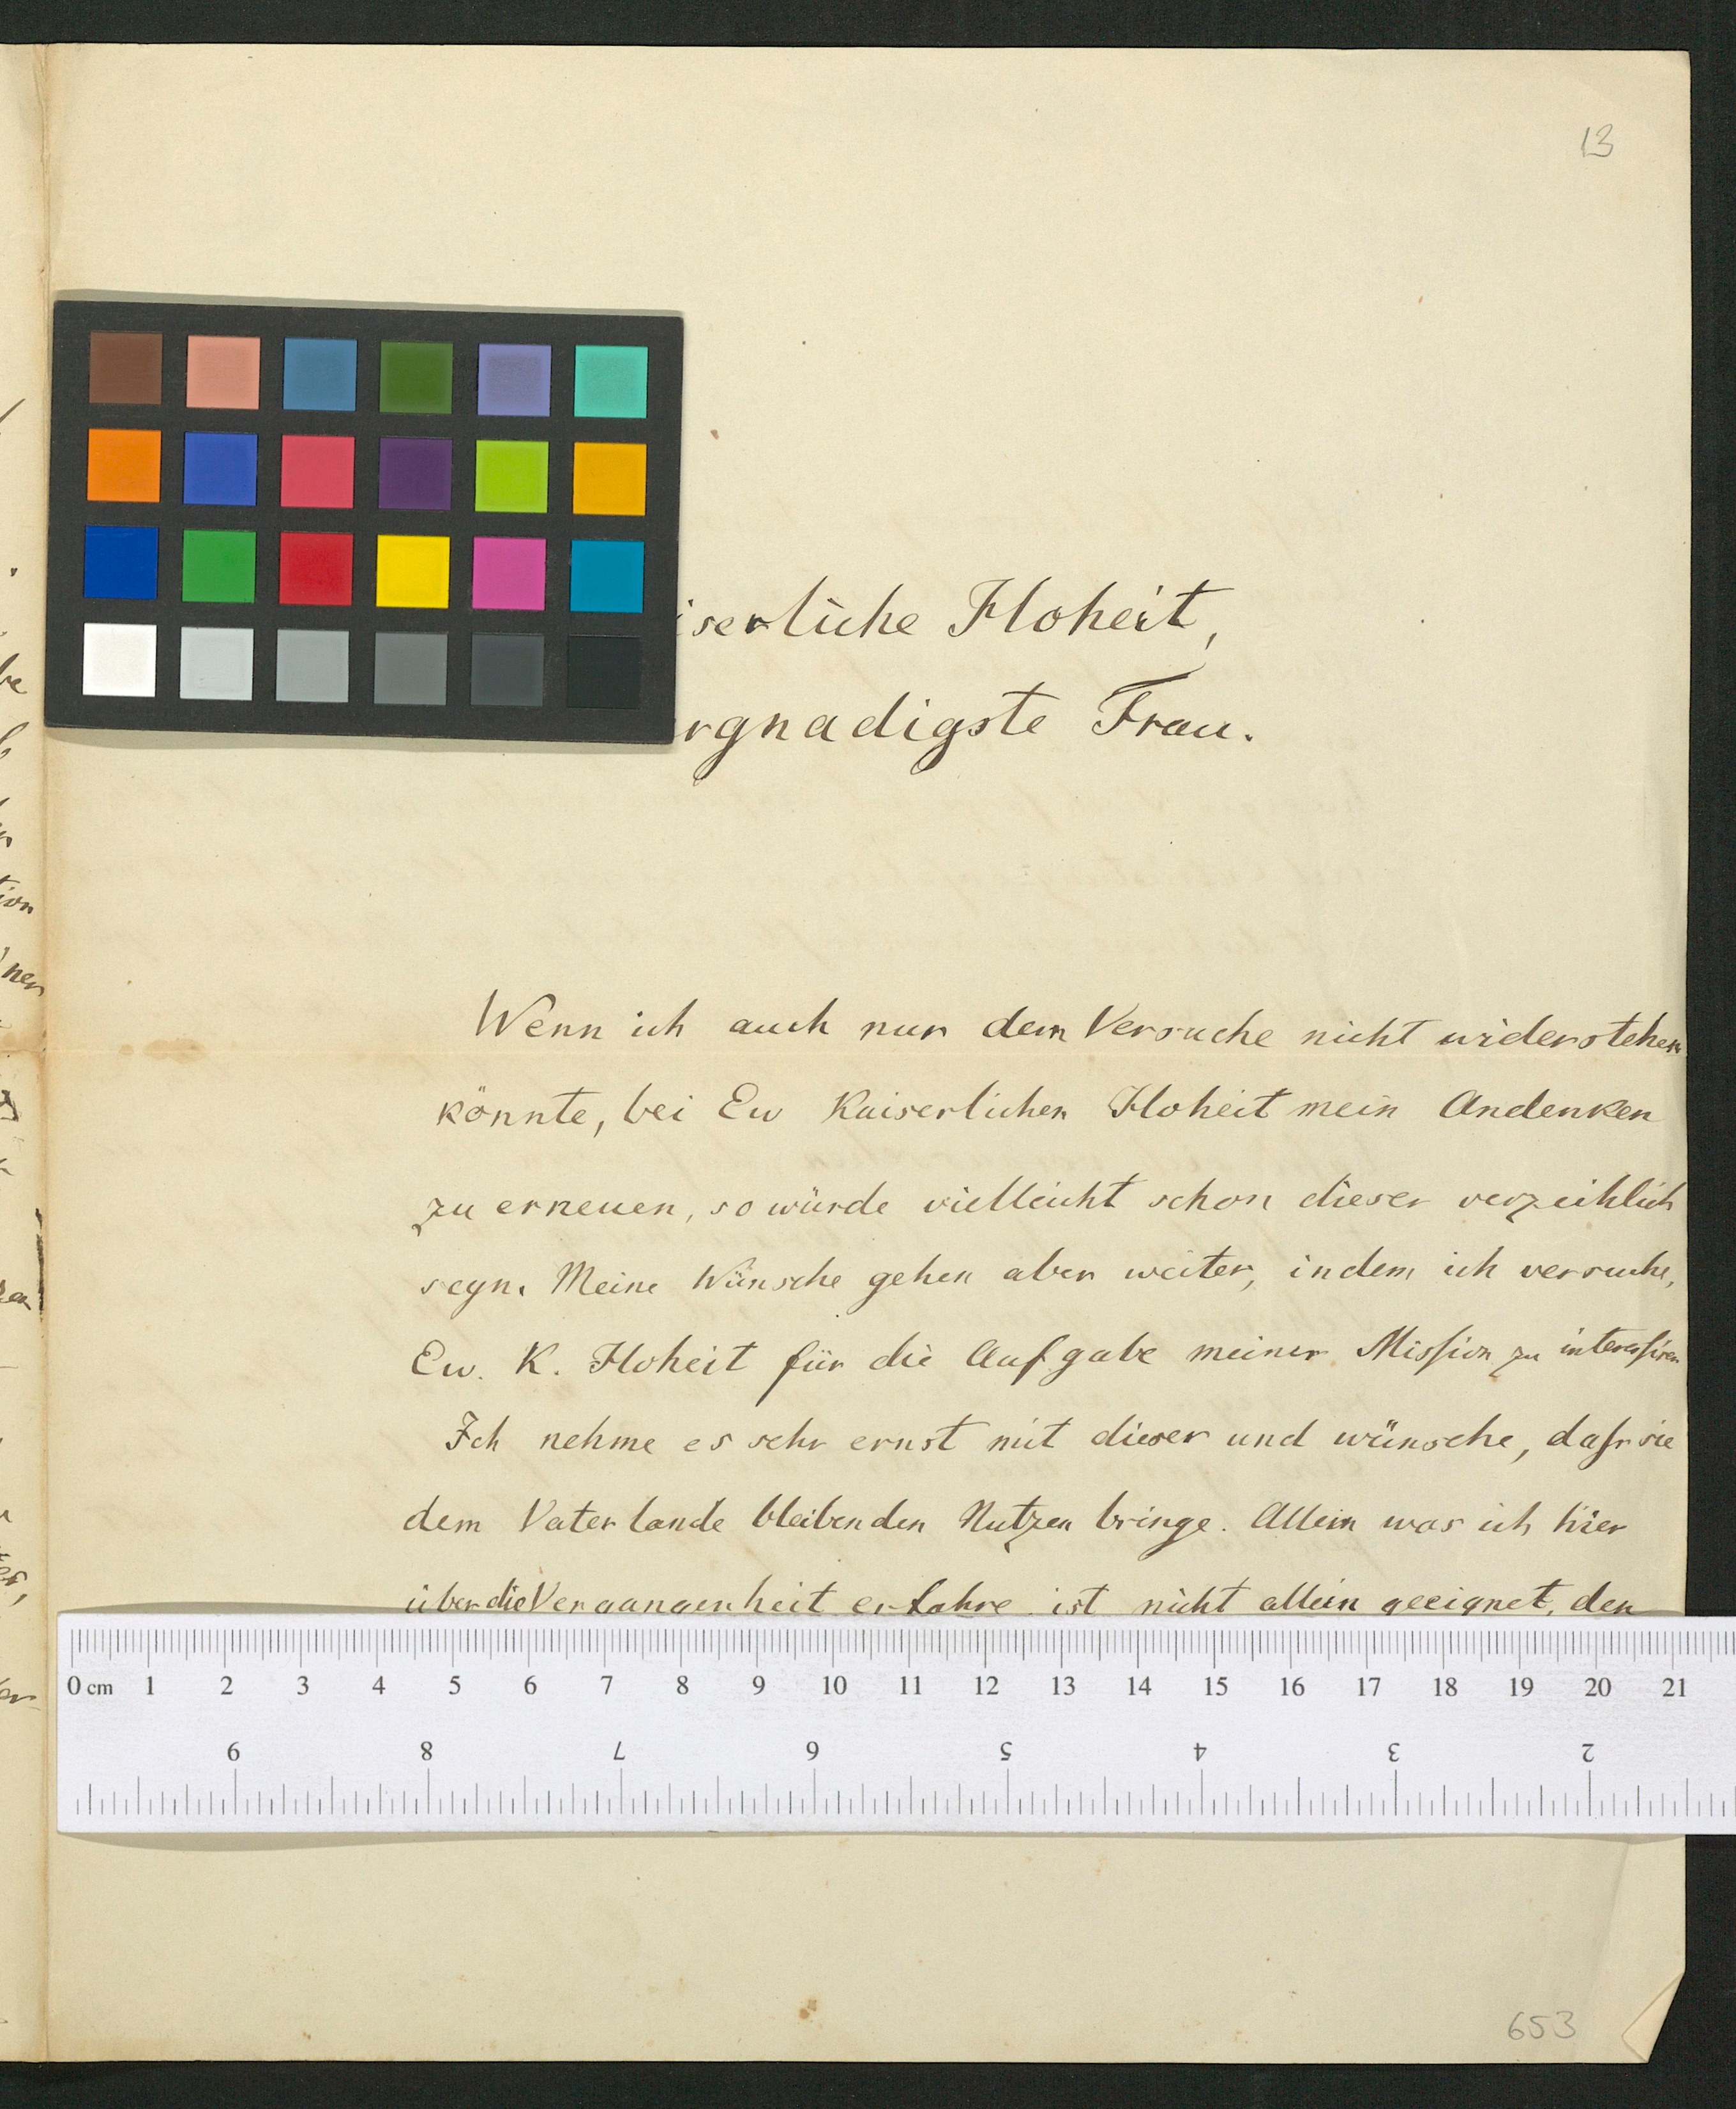 13
iserliche Hoheit,
rgnadigste Frau.
Wenn ich auch nur dem Versuche nicht widerstehen
könnte, bei Ew Kaiserlichen Hoheit mein Andenken
zu erneuen, so würde vielleicht schon dieser verzeihlich
seyn. Meine Wünsche gehen aber weiter, indem ich versuche,
Ew. K. Hoheit für die Aufgabe meiner Miſsion zu intereſsiren
Ich nehme es sehr ernst mit dieser und wünsche, daſs sie
dem Vaterlande bleibenden Nutzen bringe. Allein was ich hier
über die Vergangenheit erfahre, ist nicht allein geeignet, den
0 cm 1 2 3 4 5 6 7 8 9 10 11 12 13 14 15 16 17 18 19 20 21
9 8 7 6 5 4 3 2
653